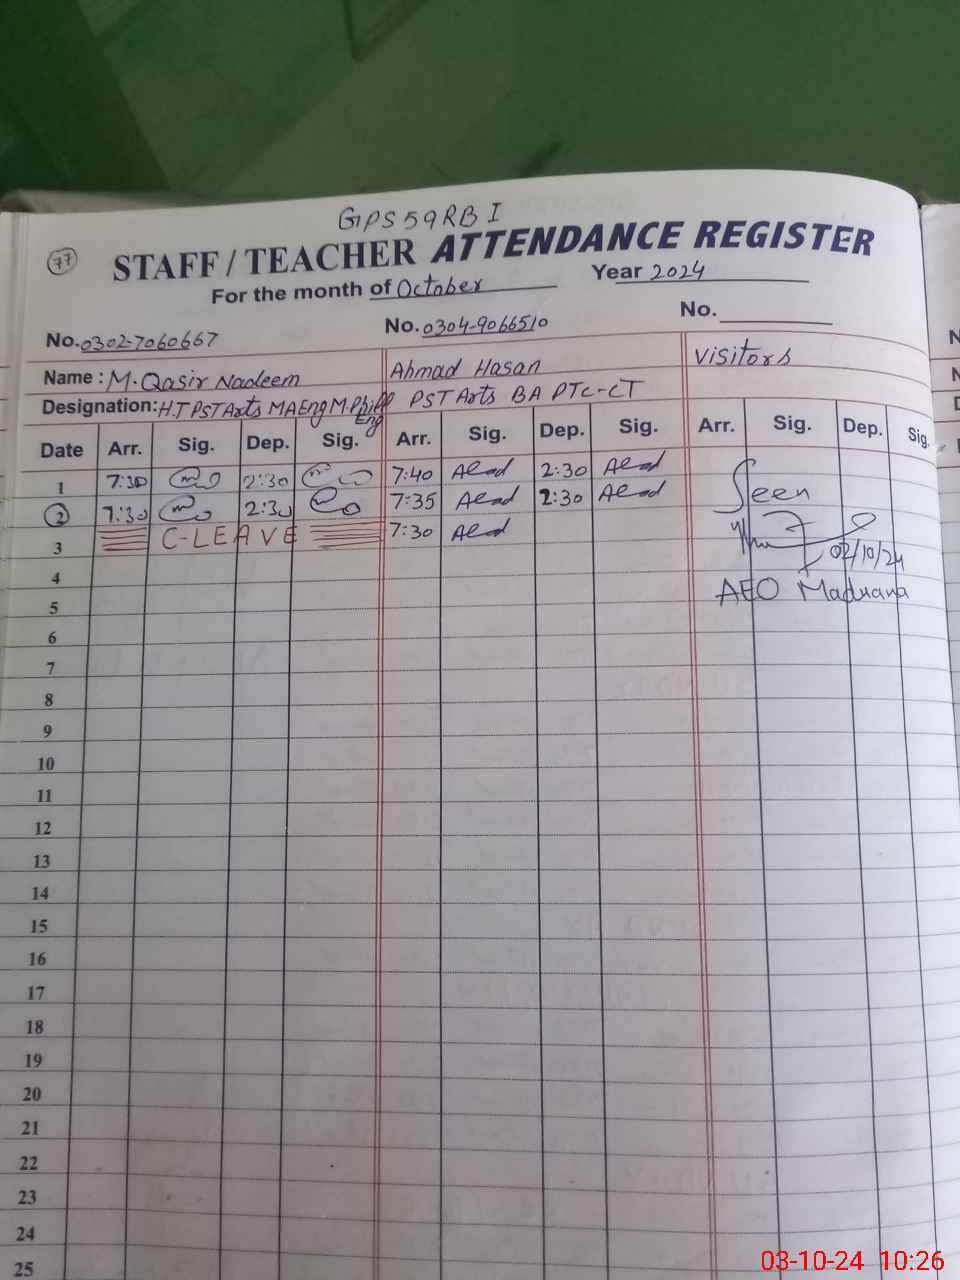 GPS 59RB I
77
STAFF / TEACHER ATTENDANCE REGISTER
For the month of October Year 2024
No. 0302-7060667 No. 0304-9066510 No.
Name : M. Qasir Nadeem Ahmad Hasan Visitors
Designation: H.T PST Arts MA Eng M.Phill Eng PST Arts BA PTC-CT
Date Arr. Sig. Dep. Sig. Arr. Sig. Dep. Sig. Arr. Sig. Dep. Sig.
1 7:30 2:30 7:40 2:30 Seen
2 7:30 2:30 7:35 2:30
3 C-LEAVE 7:30 02/10/24
4 AEO Maduana
5
6
7
8
9
10
11
12
13
14
15
16
17
18
19
20
21
22
23
24
25
03-10-24 10:26